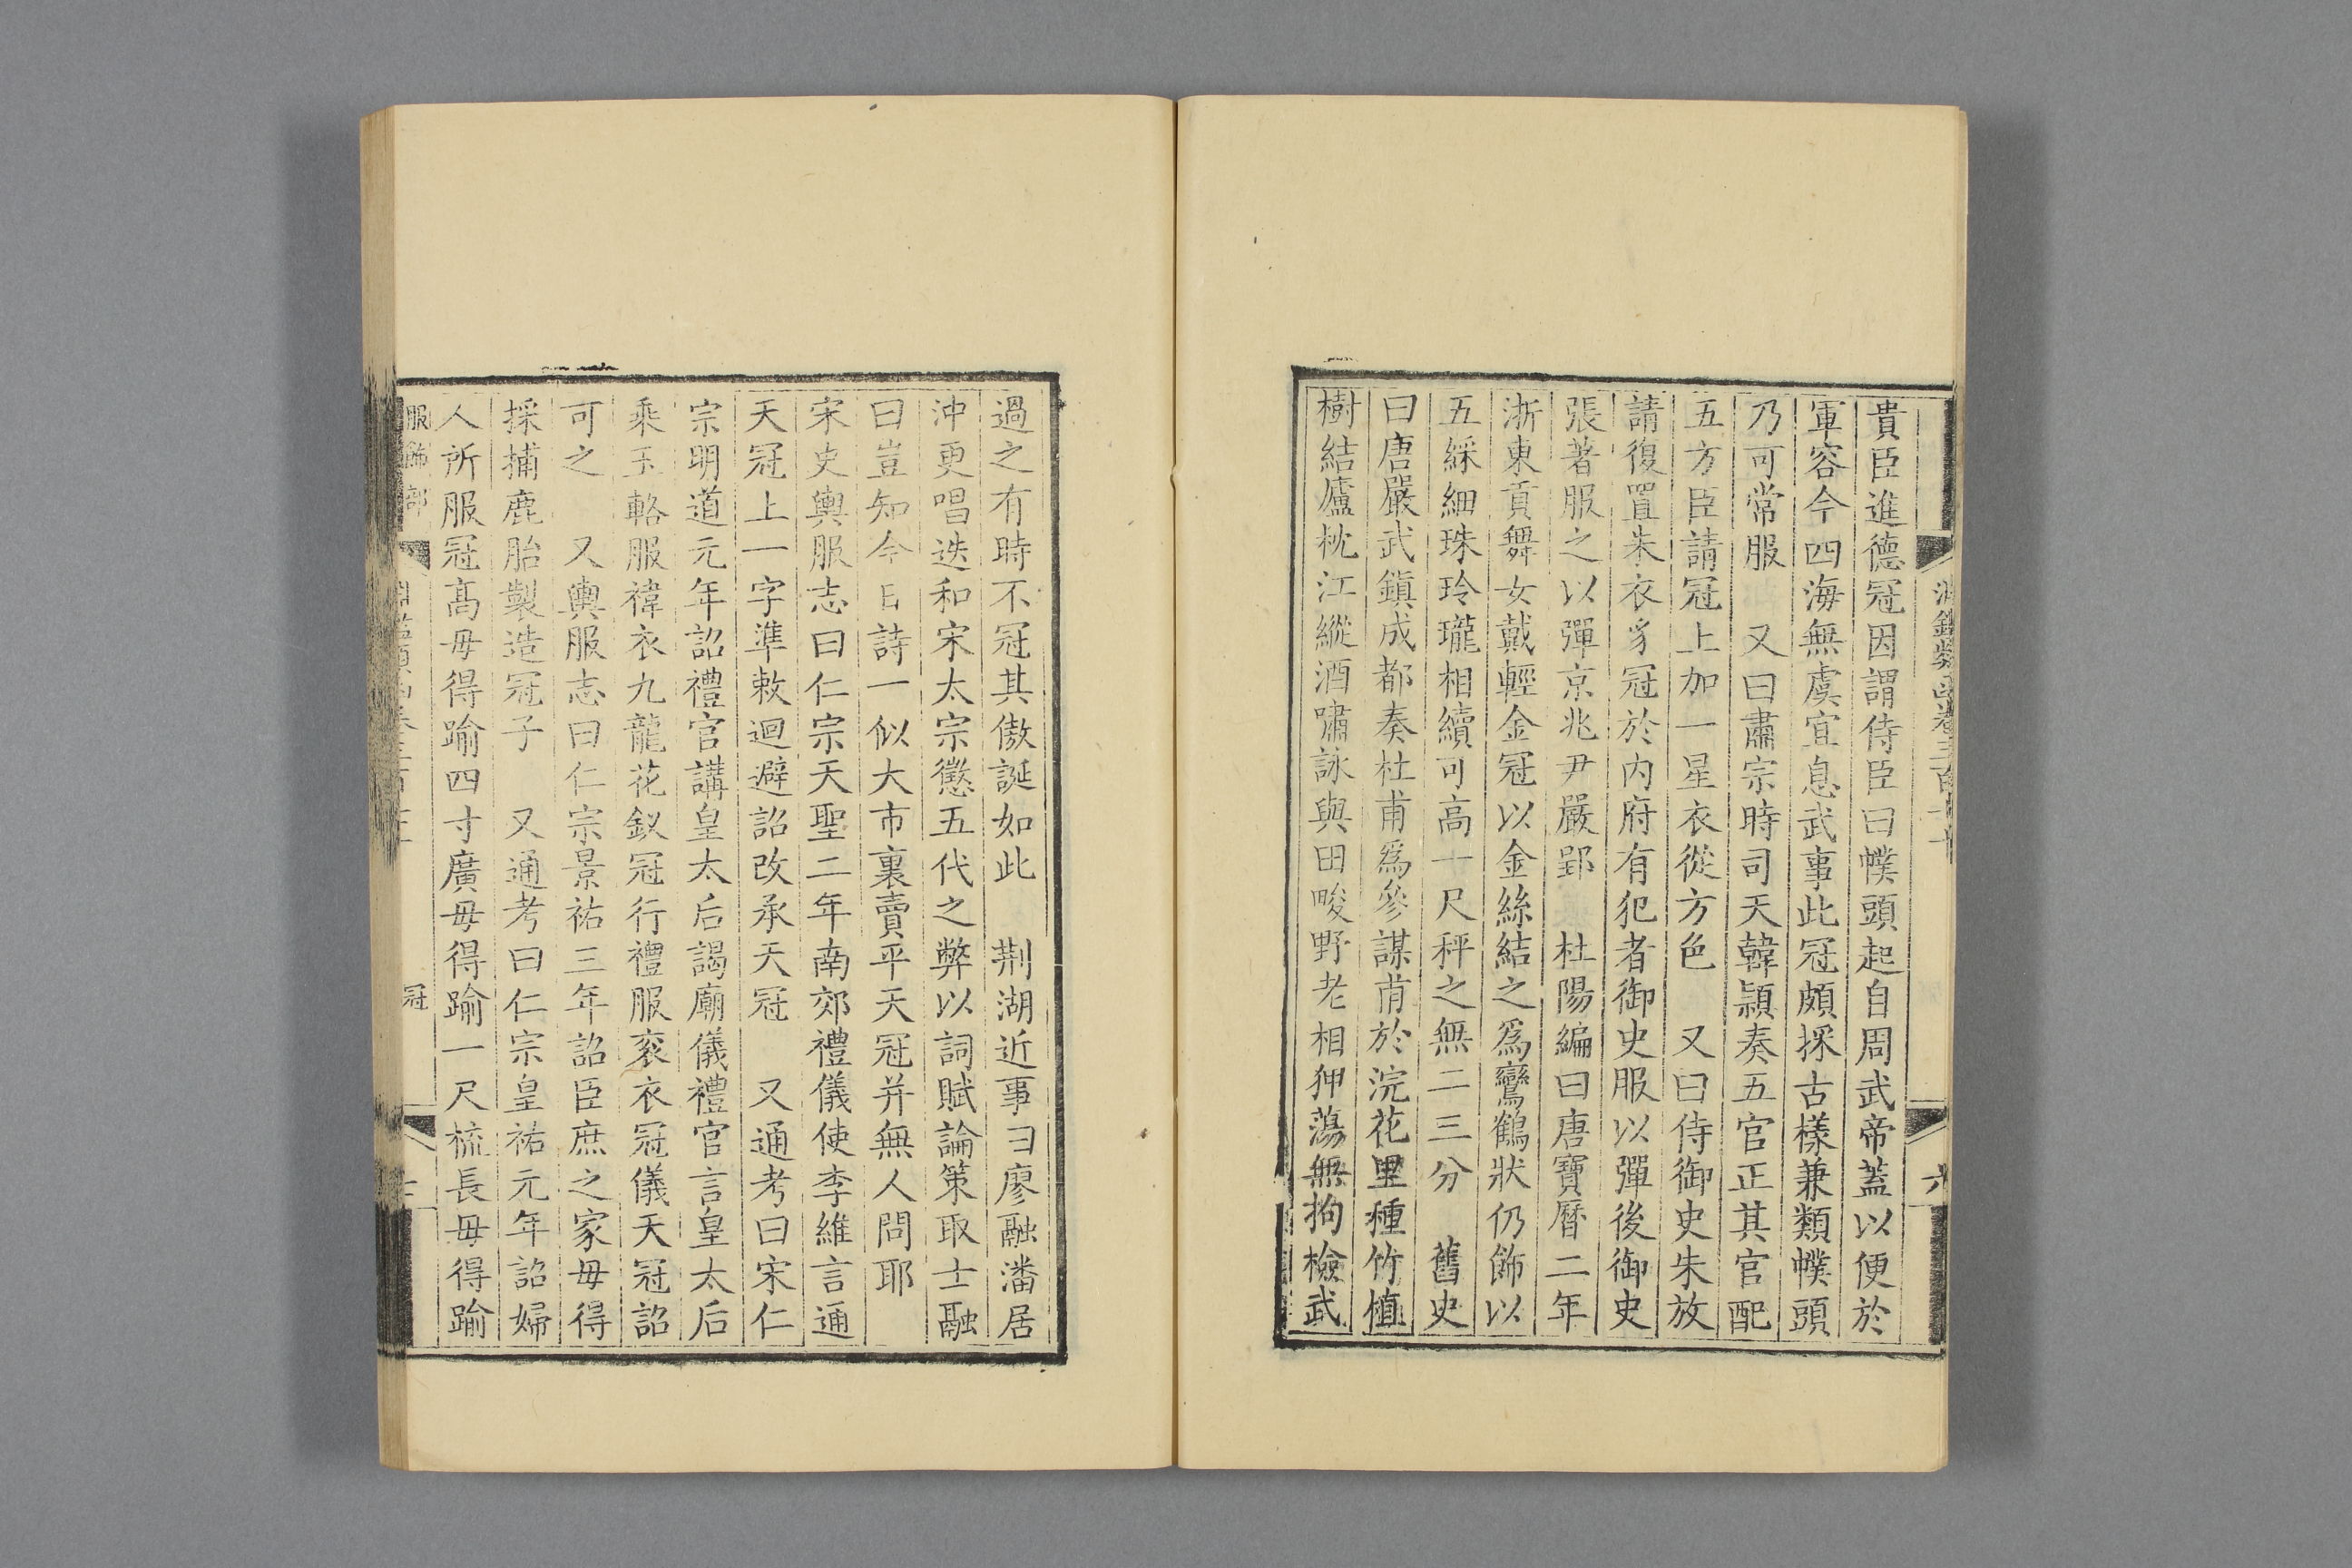 貴臣進德冠因謂侍臣曰幞頭起自周武帝蓋以便於
軍容今四海無虞宜息武事此冠頗採古樣兼類幞頭
乃可常服　又曰肅宗時司天韓穎奏五官正其官配
五方臣請冠上加一星衣從方色　又曰侍御史朱放
請復置朱衣豸冠於內府有犯者御史服以彈後御史
張著服之以彈京兆尹嚴郢　杜陽編曰唐寶曆二年
浙東貢舞女戴輕金冠以金絲結之爲鸞鶴狀仍飾以
五綵細珠玲瓏相續可高一尺秤之無二三分　舊史
曰唐嚴武鎮成都奏杜甫爲參謀甫於浣花里種竹植
樹結廬枕江縱酒嘯詠與田畯野老相狎蕩無拘檢武
過之有時不冠其傲誕如此　荆湖近事曰廖融潘居
沖更唱迭和宋太宗懲五代之弊以詞賦論策取士融
曰豈知今日詩一似大市裏賣平天冠并無人問耶
宋史輿服志曰仁宗天聖二年南郊禮儀使李維言通
天冠上一字準敕迴避詔改承天冠　又通考曰宋仁
宗明道元年詔禮官講皇太后謁廟儀禮官言皇太后
乘玉輅服褘衣九龍花釵冠行禮服衮衣冠儀天冠詔
可之　又輿服志曰仁宗景祐三年詔臣庶之家毋得
採捕鹿胎製造冠子　又通考曰仁宗皇祐元年詔婦
人所服冠高毋得踰四寸廣毋得踰一尺梳長毋得踰
服飾部
冠